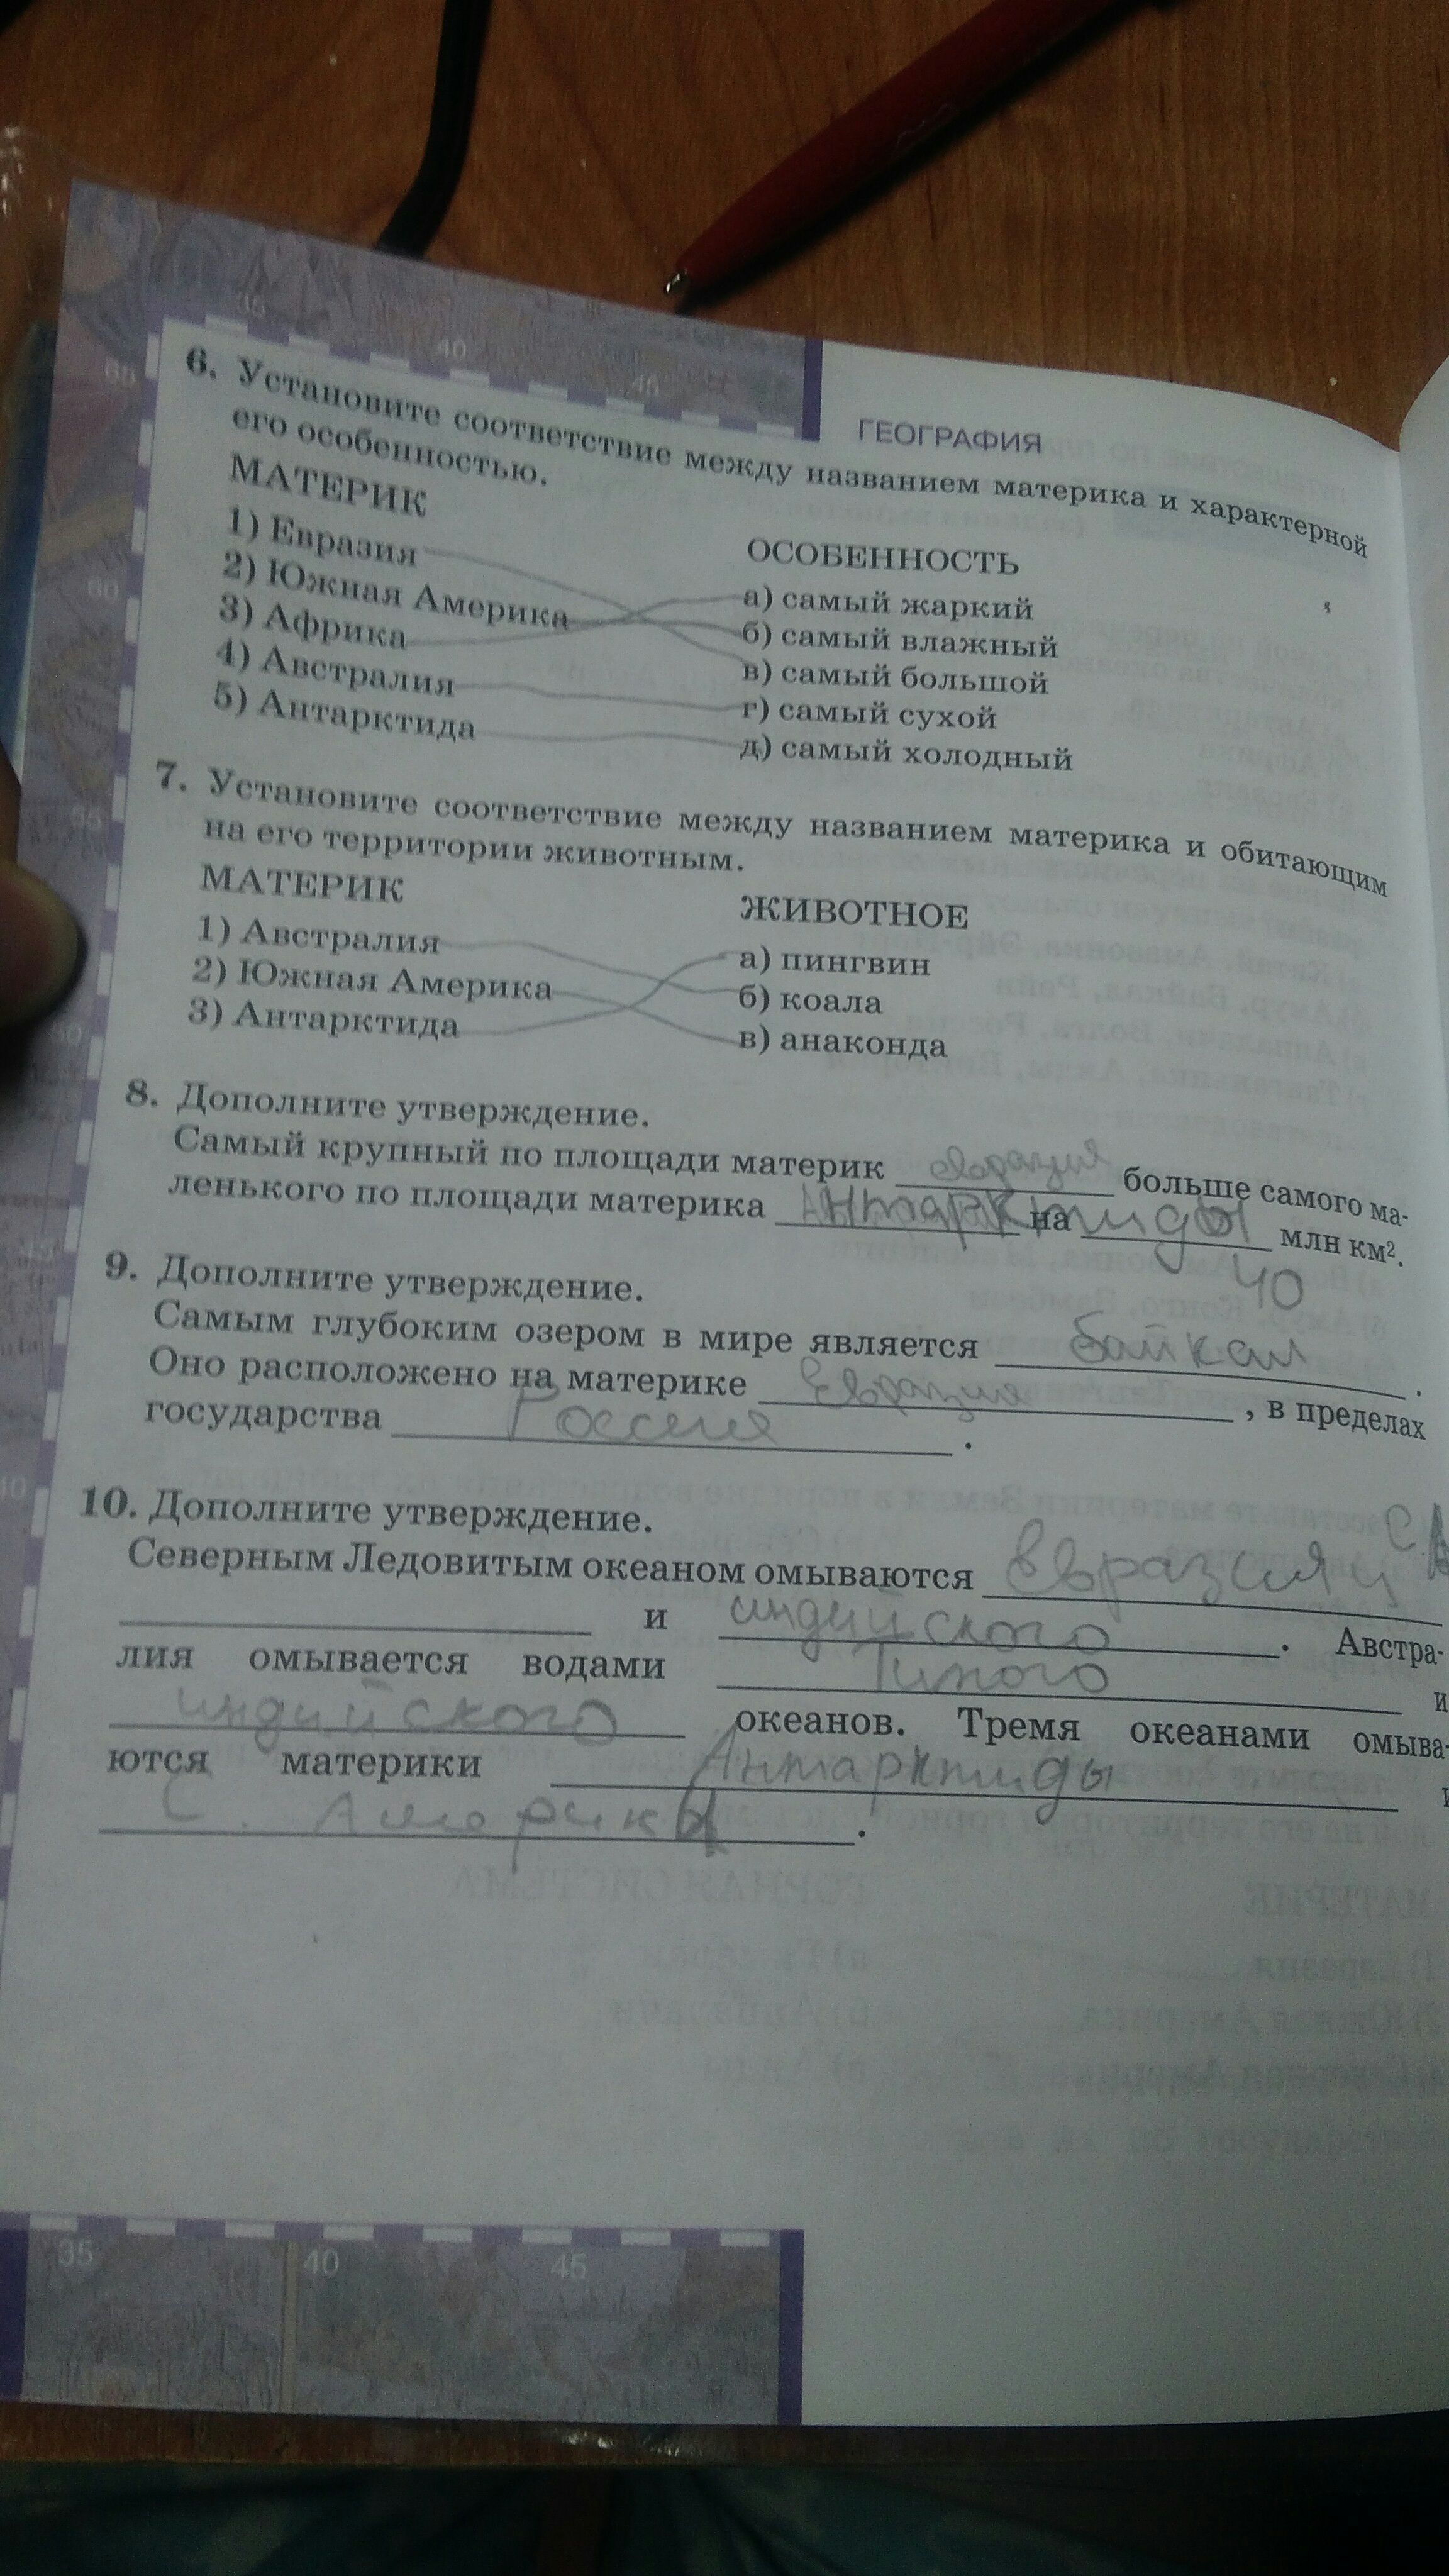 45
40
45
65
ГЕОГРАФИЯ
6. Установите соответствие между названием материка и характерной
его особенностью.
МАТЕРИК
ОСОБЕННОСТЬ
1) Евразия
а) самый жаркий
2) Южная Америка
б) самый влажный
3) Африка
в) самый большой
4) Австралия
г) самый сухой
5) Антарктида
д) самый холодный
60
7. Установите соответствие между названием материка и обитающим
на его территории животным.
МАТЕРИК
ЖИВОТНОЕ
1) Австралия
а) пингвин
2) Южная Америка
б) коала
3) Антарктида
в) анаконда
8. Дополните утверждение.
Самый крупный по площади материк евразия больше самого ма-
ленького по площади материка Антарктиды на млн км².
40
9. Дополните утверждение.
Самым глубоким озером в мире является байкал.
Оно расположено на материке Евразия, в пределах
государства Россия.
10. Дополните утверждение.
Северным Ледовитым океаном омываются Евразия и
и индийского. Австра-
лия омывается водами Тихого и
индийского океанов. Тремя океанами омыва-
ются материки Антарктиды
С. Америка.
35
40
45